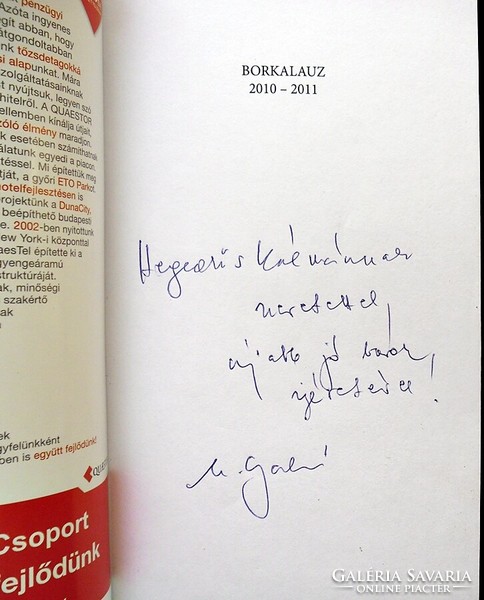 pénzügyi
Azóta ingyenes
gít abban, hogy
átgondoltabban
nk tőzsdetagokká
si alapunkat. Mára
zolgáltatásainknak
nt nyújtsuk, legyen szó
hitelről. A QUAESTOR
ellemben kínálja útjait,
zóló élmény maradjon.
k esetében számíthatnak
álatunk egyedi a piacon,
téssel. Mi építettük meg
tját, a győri ETO Parkot.
otelfejlesztésen is
rojektünk a DunaCity,
beépíthető budapesti
e. 2002-ben nyitottunk
ew York-i központtal
aesTel építette ki a
gyengeáramú
struktúráját.
ak, minőségi
n szakértő
ak
ek
gyfelünkként
ben is együtt fejlődünk!
QUAES
Csoport
fejlődünk
BORKALAUZ
2010 – 2011
Hegedűs Kálmánnak
szeretettel,
újabb jó borok
ízére!
GALÉRIA SAVARIA
ONLINE PIACTÉR